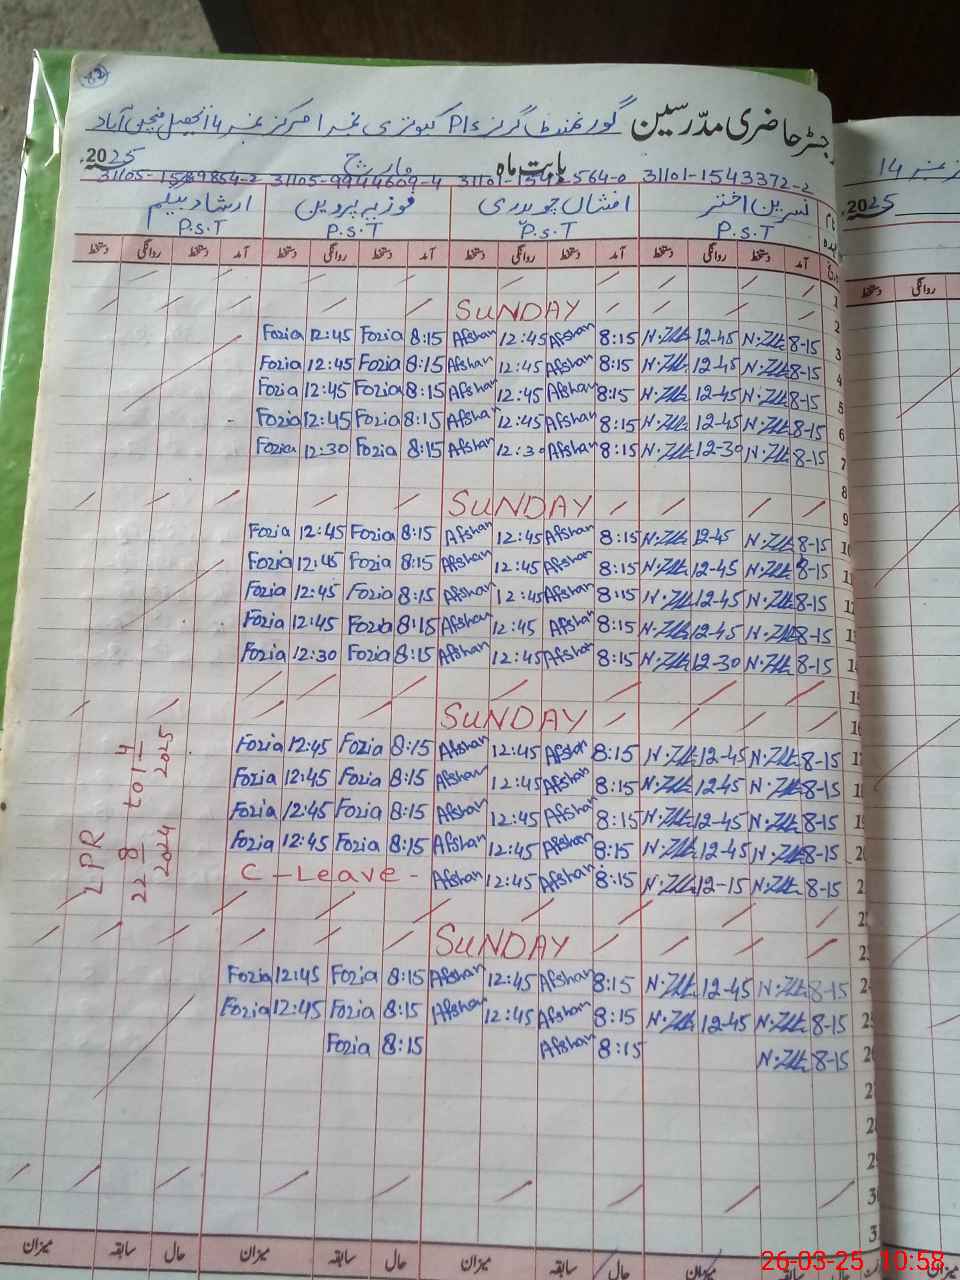 82
رجسٹر حاضری مدرسین گورنمنٹ گرلز P/s کیوٹری نمبر 1 مرکز نمبر 14 تحصیل منچن آباد
بابت ماہ مارچ 2025
31105-1589854-2 31105-9944609-4 31101-1542564-0 31101-1543372-2
نسرین اختر افشاں چوہدری فوزیہ پروین ارشاد بیگم
P.S.T P.S.T P.S.T P.S.T
دستخط روانگی دستخط آمد دستخط روانگی دستخط آمد دستخط روانگی دستخط آمد دستخط روانگی دستخط آمد
1
SUNDAY 2
Fozia 12:45 Fozia 8:15 Afshan 12:45 Afshan 8:15 12-45 8-15 3
Fozia 12:45 Fozia 8:15 Afshan 12:45 Afshan 8:15 12-45 8-15 4
Fozia 12:45 Fozia 8:15 Afshan 12:45 Afshan 8:15 12-45 8-15 5
Fozia 12:45 Fozia 8:15 Afshan 12:45 Afshan 8:15 12-45 8-15 6
Fozia 12:30 Fozia 8:15 Afshan 12:30 Afshan 8:15 12-30 8-15 7
8
SUNDAY 9
Fozia 12:45 Fozia 8:15 Afshan 12:45 Afshan 8:15 12-45 8-15
Fozia 12:45 Fozia 8:15 Afshan 12:45 Afshan 8:15 12-45 8-15
Fozia 12:45 Fozia 8:15 Afshan 12:45 Afshan 8:15 12-45 8-15
Fozia 12:45 Fozia 8:15 Afshan 12:45 Afshan 8:15 12-45 8-15
Fozia 12:30 Fozia 8:15 Afshan 12:45 Afshan 8:15 12-30 8-15
SUNDAY
Fozia 12:45 Fozia 8:15 Afshan 12:45 Afshan 8:15 12-45 8-15
Fozia 12:45 Fozia 8:15 Afshan 12:45 Afshan 8:15 12-45 8-15
Fozia 12:45 Fozia 8:15 Afshan 12:45 Afshan 8:15 12-45 8-15
Fozia 12:45 Fozia 8:15 Afshan 12:45 Afshan 8:15 12-45 8-15
C - Leave - Afshan 12:45 Afshan 8:15 12-15 8-15
LPR 22 8 2024 to 1 4 2025
SUNDAY
Fozia 12:45 Fozia 8:15 Afshan 12:45 Afshan 8:15 12-45 8-15
Fozia 12:45 Fozia 8:15 Afshan 12:45 Afshan 8:15 12-45 8-15
Fozia 8:15 Afshan 8:15 8-15
میزان سابقہ حال میزان سابقہ حال میزان سابقہ حال میزان
14
2025
دستخط روانگی
26-03-25 10:58